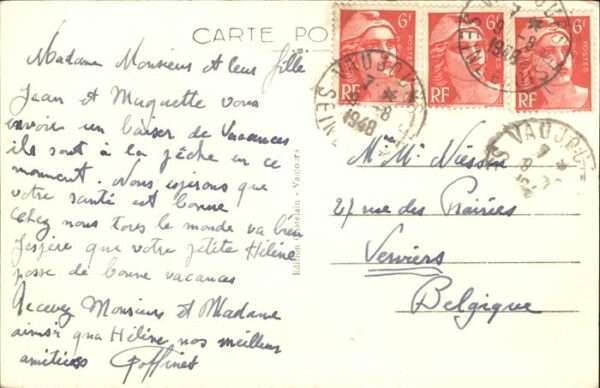 CARTE PO
Madame Monsieur et leur fille
Jean et Muguette vous
envoie un baiser de Vacances
ils sont à la pêche en ce
moment. Nous espérons que
votre santé est bonne
Chez nous tous le monde va bien
J'espère que votre petite Hélène
passe de bonne vacances
Recevez Monsieur et Madame
ainsi qua Hélène nos meilleurs
amitiées Goffinet
Edition
6F
POSTES
RF
6F
RF
6F
POSTES
RF
VAUJOU
7
8
1948
SEINE
VAUJOU
7
8
1948
SEINE
VAUJOU
7
8
Mr Me
27 rue des Prairies
Verviers
Belgique